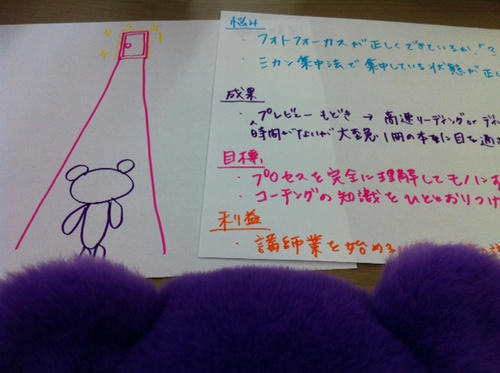 悩み
・フォトフォーカスが正しくできているか
・ミカン集中法で集中している状態が正し
成果
・プレビューもどき → 高速リーディング or ディ
時間がないが大至急1冊の本に目を通さ
目標
・プロセスを完全に理解してモノにす
・コーチングの知識をひととおりつけ
利益
・講師業を始める